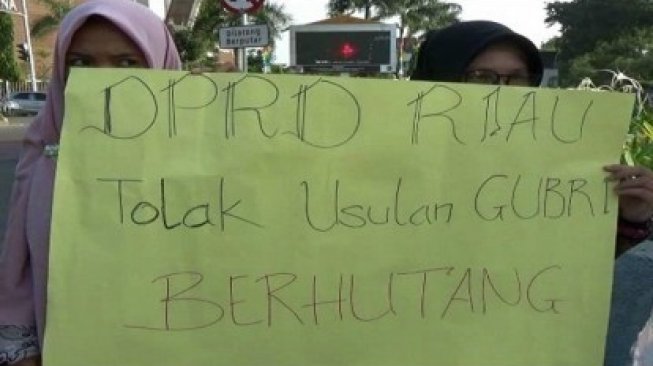 Dilarang
Berputar
DPRD RIAU
Tolak Usulan GUBRI
BERHUTANG